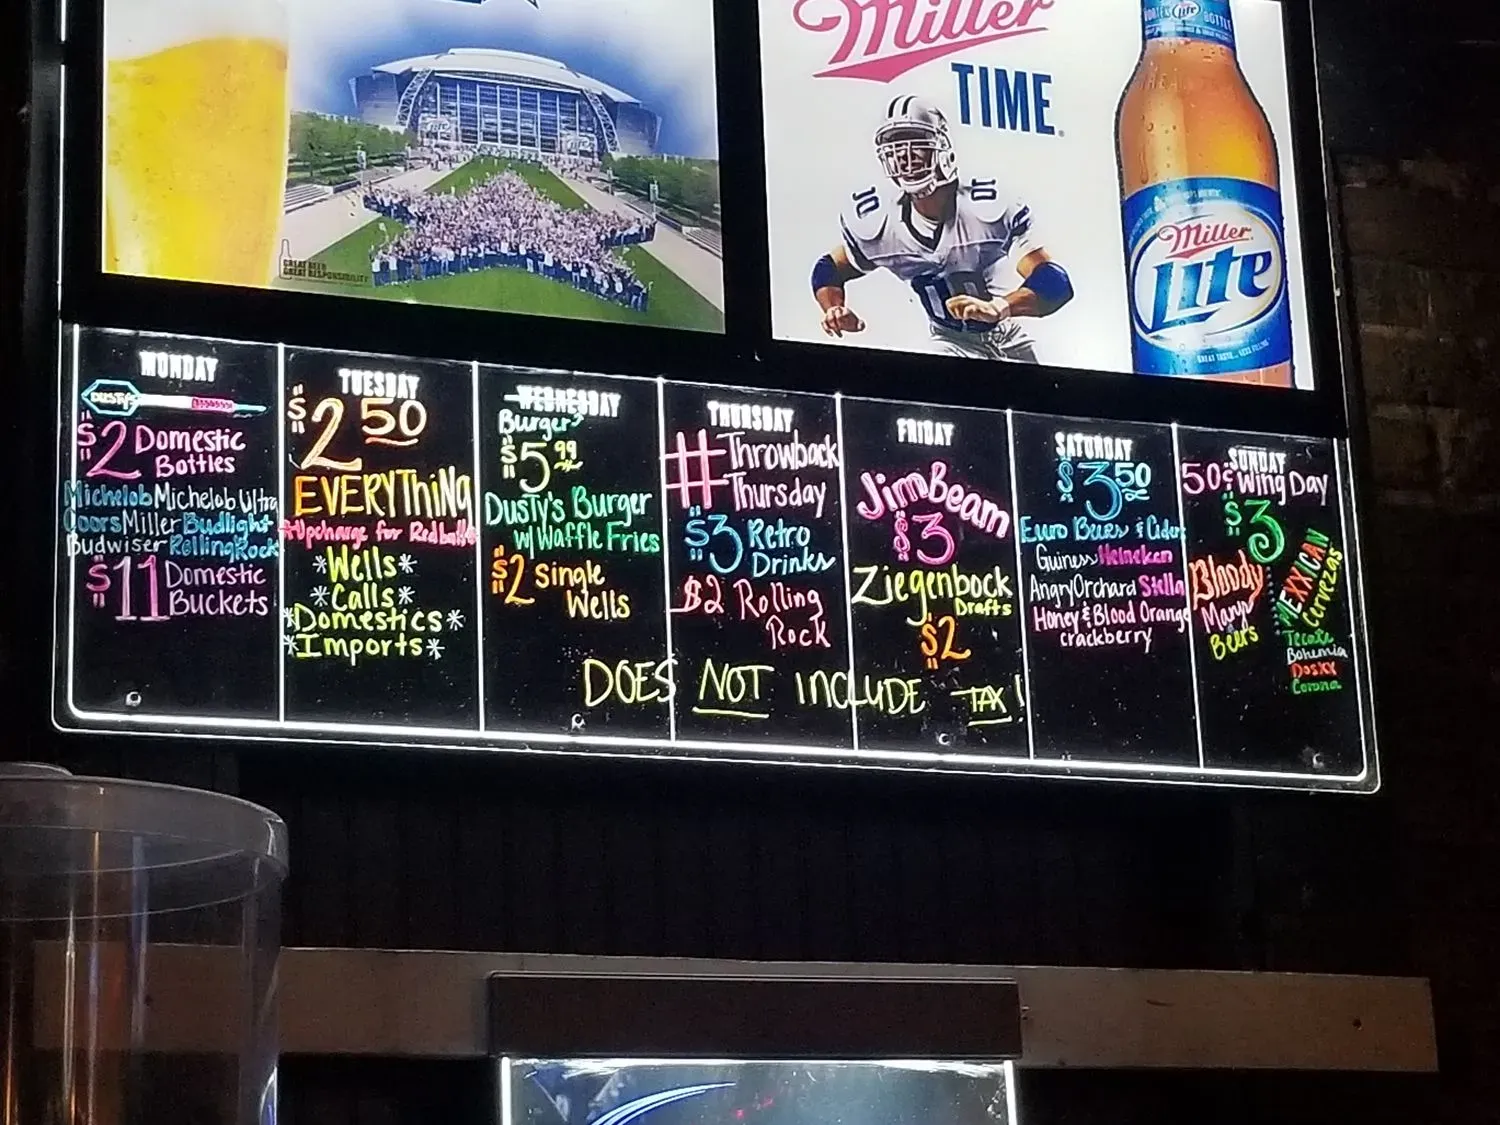 Miller
TIME
10
10
VORTEX Lite BOTTLE
Miller
Lite
GREAT TASTE... LESS FILLING
Lite
GREAT BEER
GREAT RESPONSIBILITY
MONDAY
DUSTY'S
$2 Domestic
Bottles
Michelob Michelob Ultra
Coors Miller Budlight
Budwiser Rolling Rock
$11 Domestic
Buckets
TUESDAY
$2 50
EVERYTHiNG
*Upcharge for Redbull*
*Wells*
*Calls*
*Domestics*
*Imports*
WEDNESDAY
Burger
$5.99
Dusty's Burger
w/ Waffle Fries
$2 Single
Wells
THURSDAY
# Throwback
Thursday
$3 Retro
Drinks
$2 Rolling
Rock
FRIDAY
Jim Beam
$3
Ziegenbock
Drafts
$2
SATURDAY
$3 50
Euro Beers & Ciders
Guiness Heineken
Angry Orchard Stella
Honey & Blood Orange
crackberry
SUNDAY
50¢ Wing Day
$3
Bloody
Marys
Beers
MEXXICAN
Cervezas
Tecate
Bohemia
Dosxx
Corona
DOES NOT INCLUDE TAX!